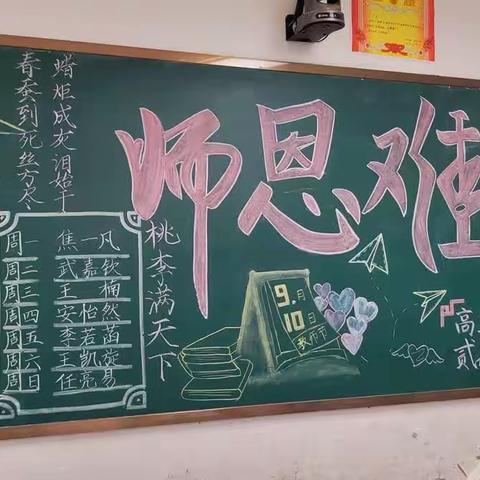 春蚕到死丝方尽
蜡炬成灰泪始干
师恩难
桃李满天下
周一 焦一凡
周二 武嘉钦
周三 王楠
周四 安怡然
周五 李若菡
周六 王凯旋
周日 任亮易
9月
10日
教师节
高
贰